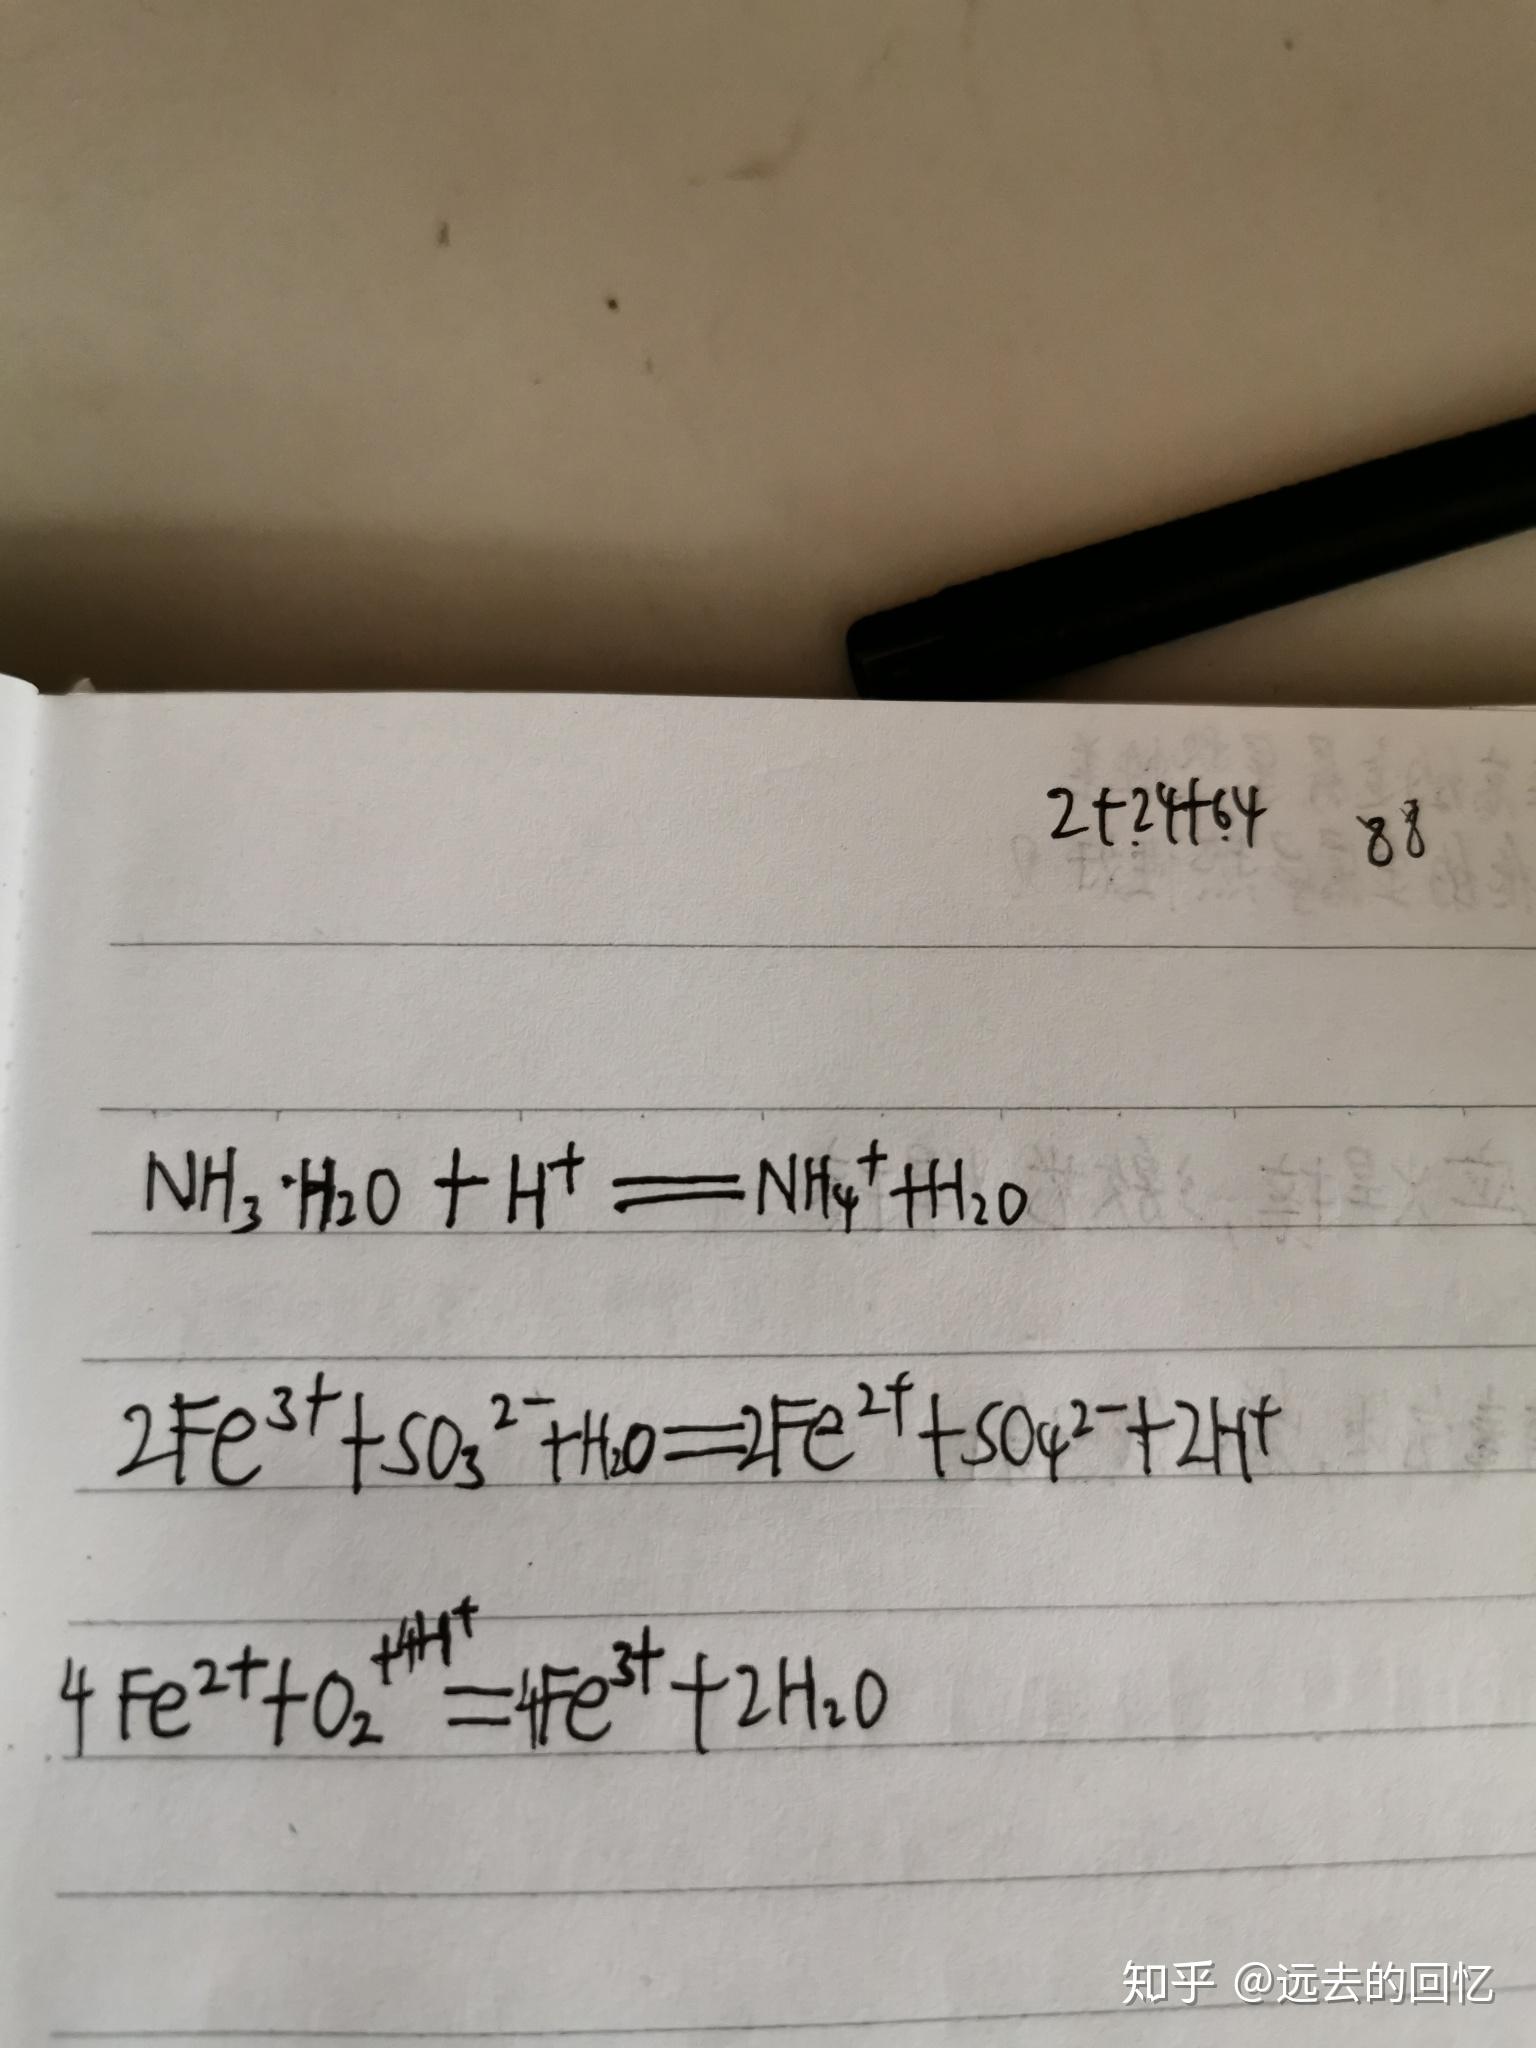 2+24+64 88
NH₃·H₂O + H⁺ == NH₄⁺+H₂O
2Fe³⁺+SO₃²⁻+H₂O==2Fe²⁺+SO₄²⁻+2H⁺
4Fe²⁺+O₂+4H⁺=4Fe³⁺+2H₂O
知乎 @远去的回忆